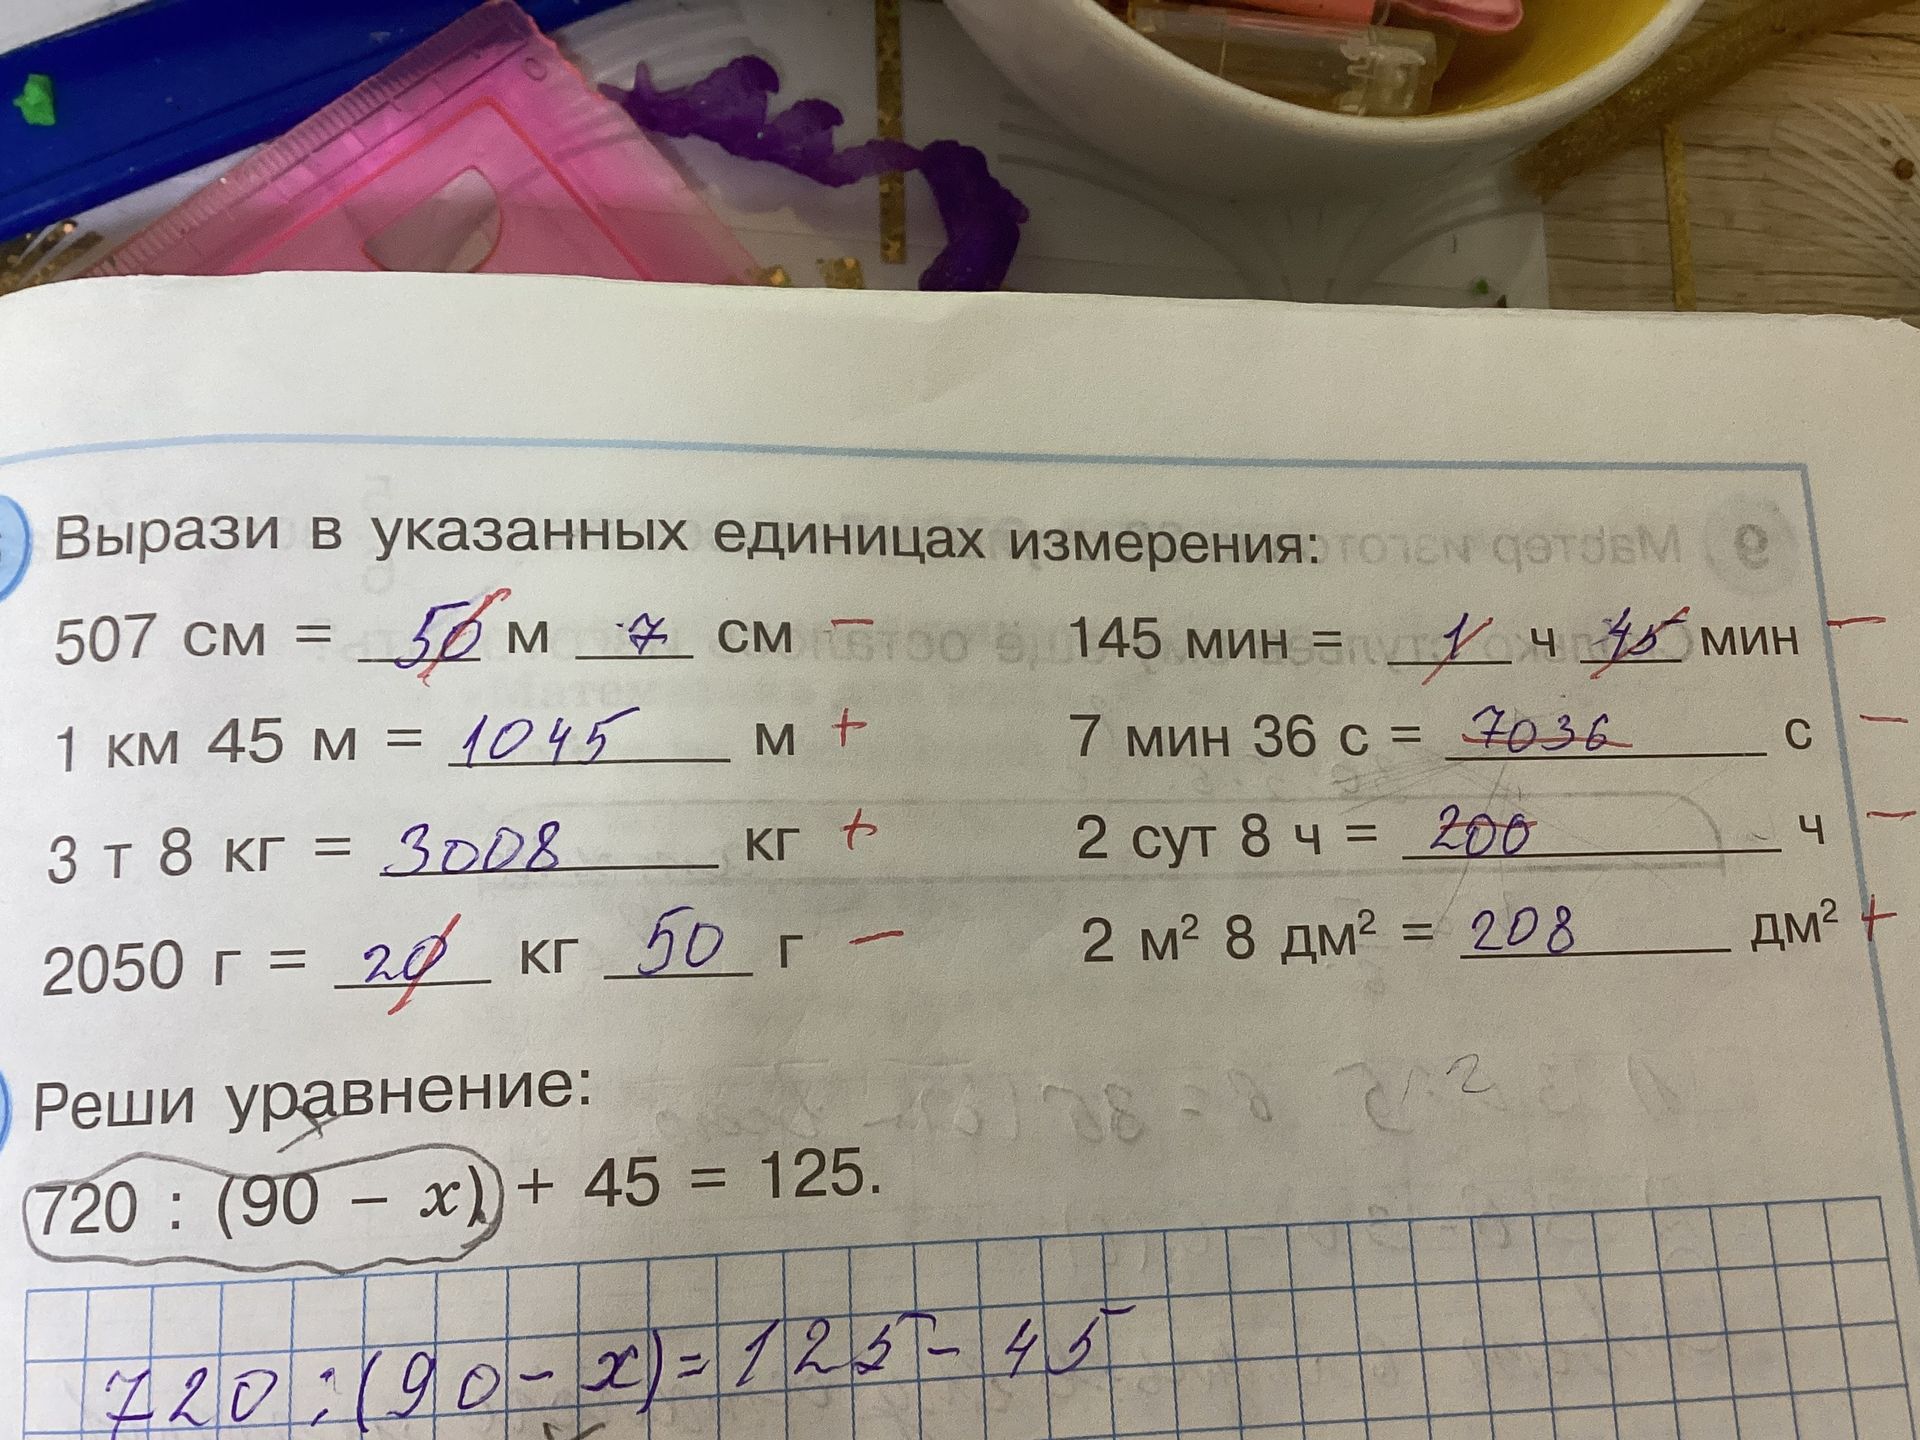 Вырази в указанных единицах измерения:
507 см = 50 м 7 см −
1 км 45 м = 1045 м +
3 т 8 кг = 3008 кг +
2050 г = 20 кг 50 г −
145 мин = 1 ч 45 мин −
7 мин 36 с = 7036 с −
2 сут 8 ч = 200 ч −
2 м² 8 дм² = 208 дм² +
Реши уравнение:
720 : (90 − x) + 45 = 125.
720 : (90 − x) = 125 − 45